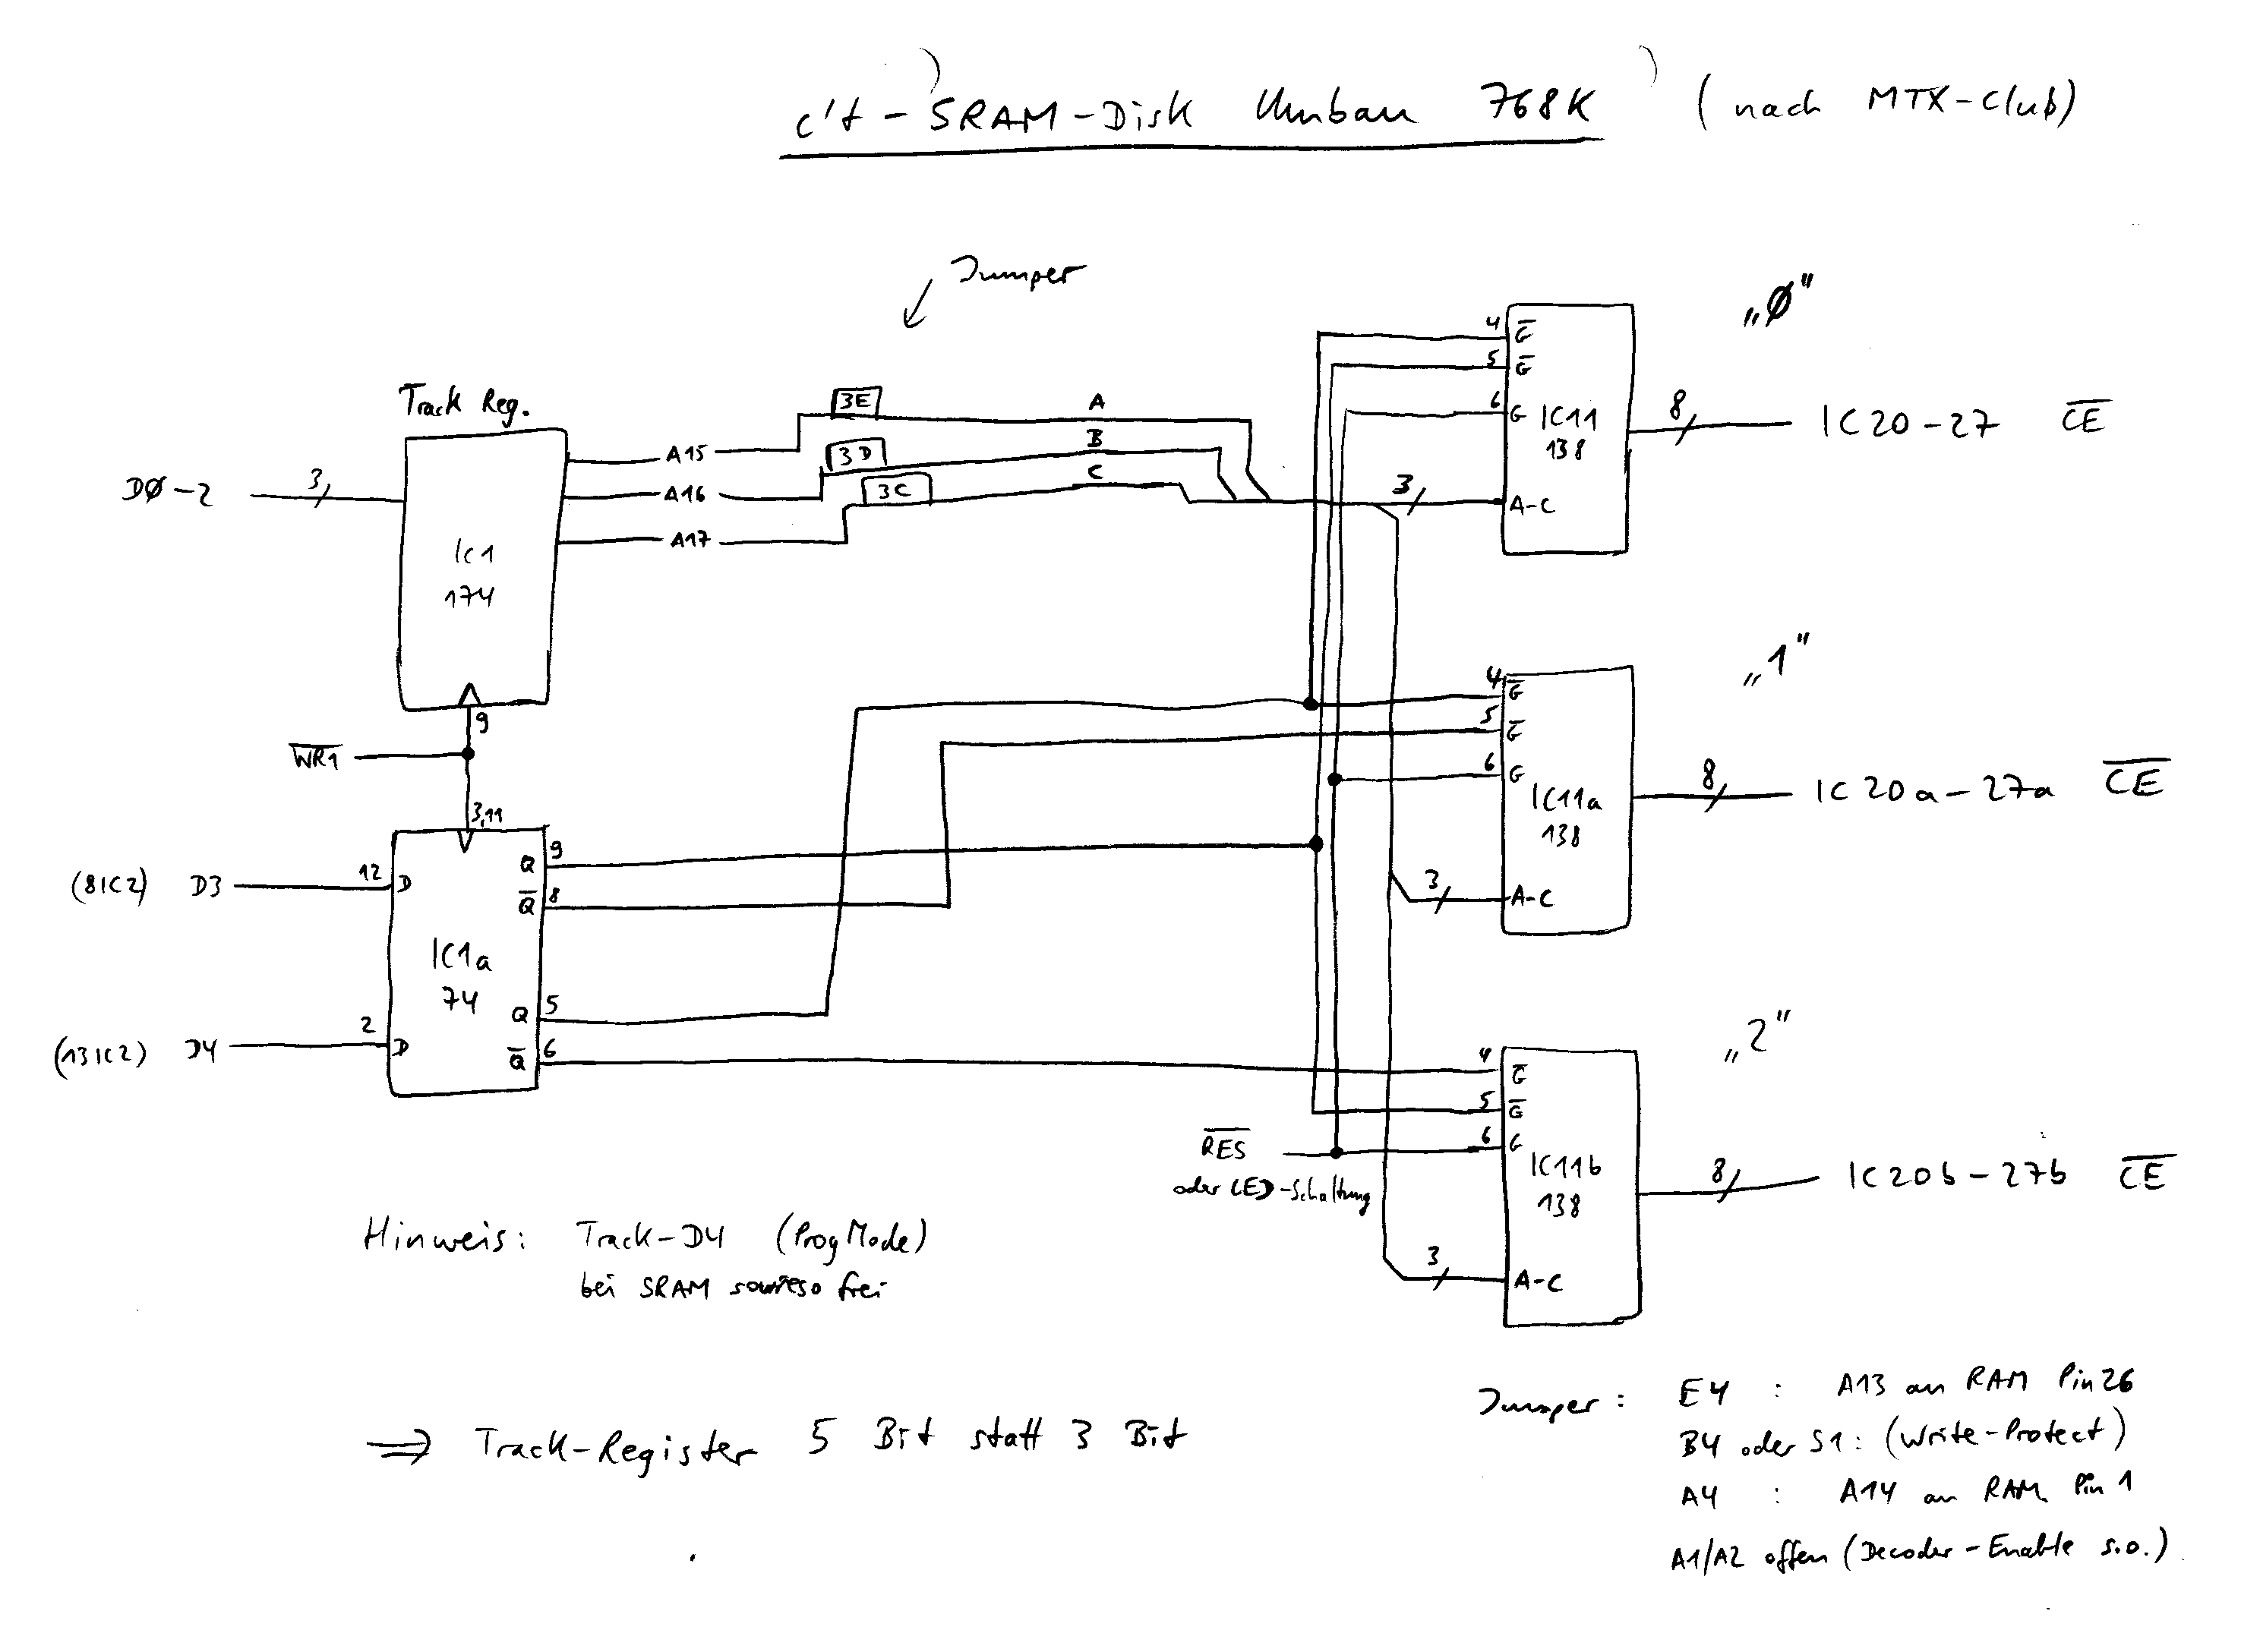 c't-SRAM-Disk Umbau 768K (nach MTX-Club)
Jumper
"Ø"
Track Reg.
DØ-2 3
IC1
174
9
A15 3E A
A16 3D B
A17 3C C
4 G̅
5 G̅
6 G
3 A-C
IC11
138
8 IC20-27 C̅E̅
W̅R̅1̅
"1"
4 G̅
5 G̅
6 G
3 A-C
IC11a
138
8 IC20a-27a C̅E̅
3,11
(8IC2) D3 12 D
(13IC2) D4 2 D
IC1a
74
Q 9
Q̅ 8
Q 5
Q̅ 6
"2"
4 G̅
5 G̅
6 G
3 A-C
IC11b
138
8 IC20b-27b C̅E̅
R̅E̅S̅
oder LED-Schaltung
Hinweis: Track-D4 (ProgMode)
bei SRAM sowieso frei
⇒ Track-Register 5 Bit statt 3 Bit
Jumper: E4 : A13 an RAM Pin26
B4 oder S1: (Write-Protect)
A4 : A14 an RAM Pin 1
A1/A2 offen (Decoder-Enable s.o.)